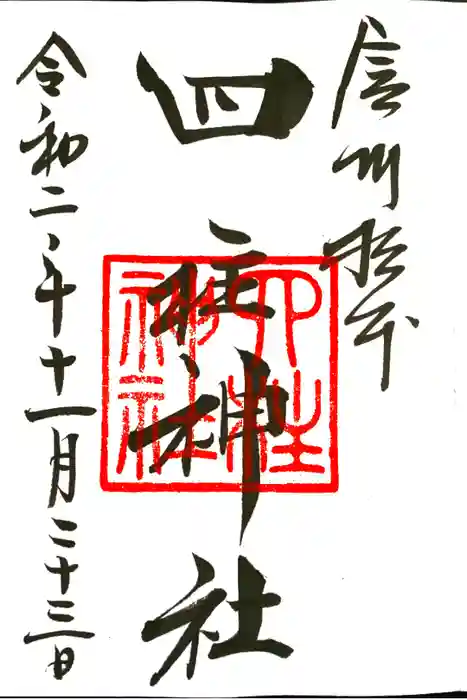 信州松本
四柱神社
四柱神社
令和二年十一月二十三日